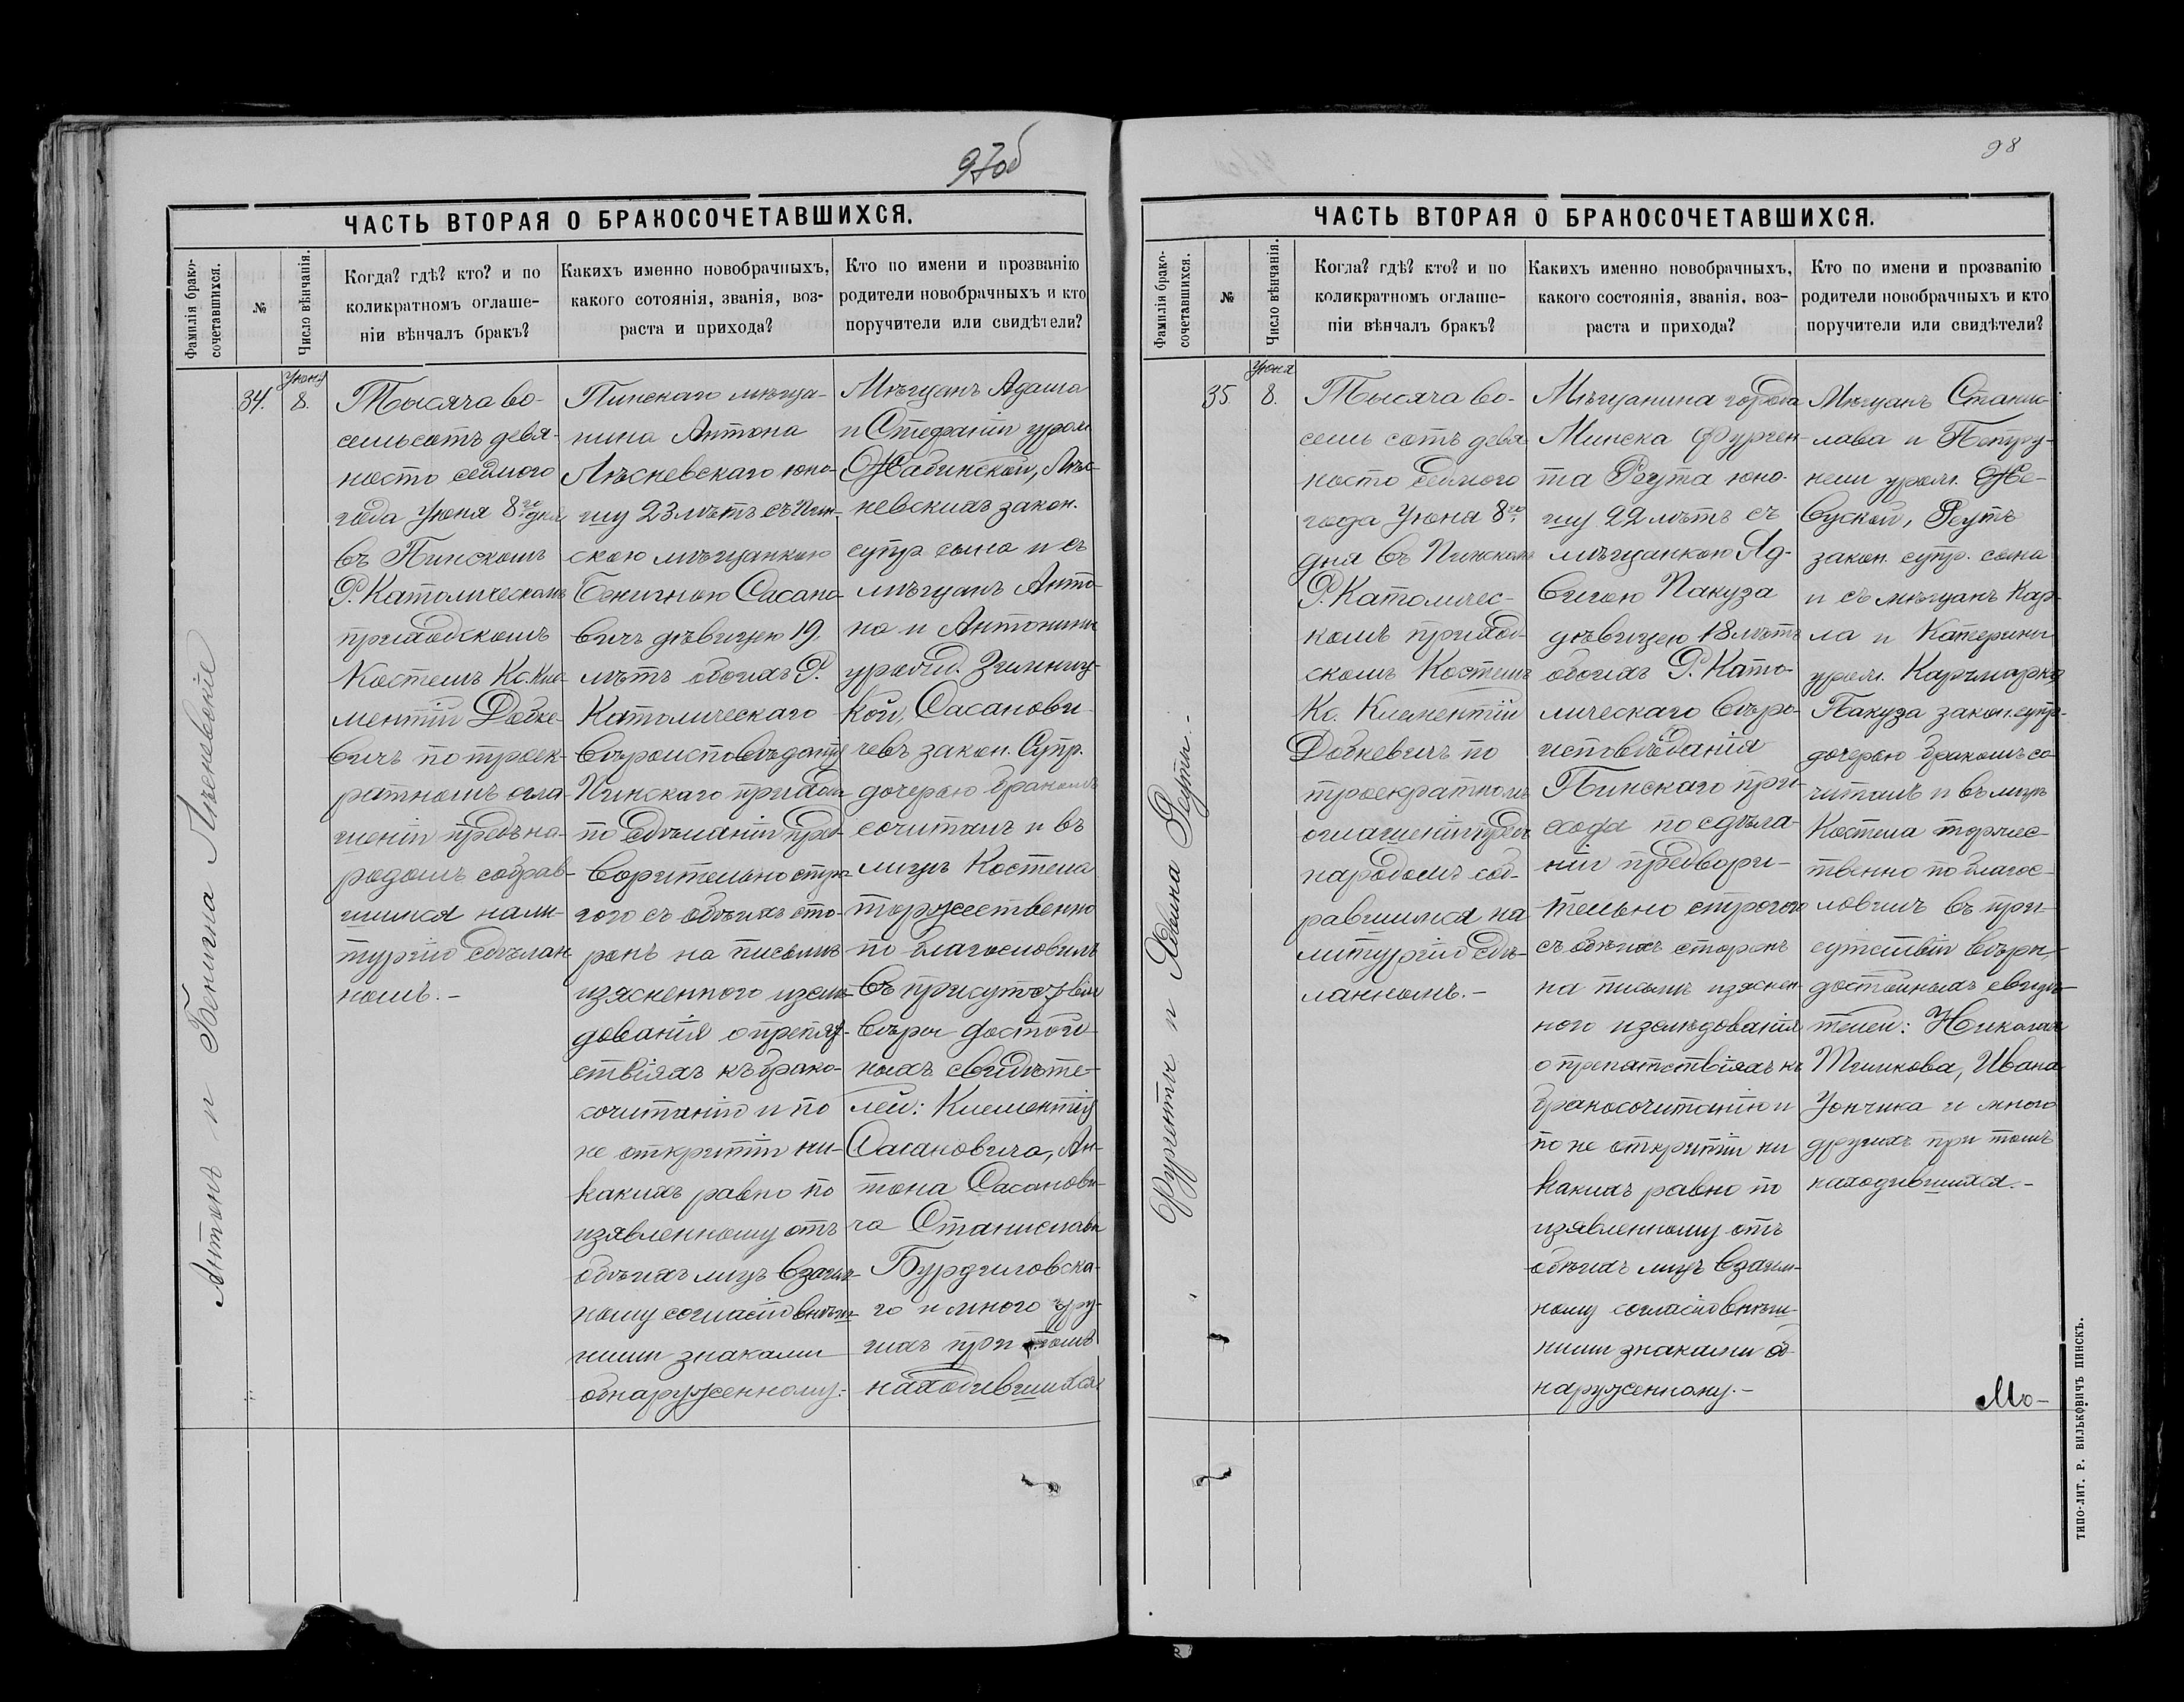 97об
ЧАСТЬ ВТОРАЯ О БРАКОСОЧЕТАВШИХСЯ.
Фамилія брако-
сочетавшихся.
№
Число вѣнчанія.
Когда? гдѣ? кто? и по
коликратномъ оглаше-
ніи вѣнчалъ бракъ?
Какихъ именно новобрачныхъ,
какого сотоянія, званія, воз-
раста и прихода?
Кто по имени и прозванію
родители новобрачныхъ и кто
поручители или свидѣтели?
Антонъ и Бенигна Лѣсневскіе
34.
Іюня
8.
Тысяча во-
семьсотъ девя-
носто седмого
года Іюня 8го дня
въ Пинскомъ
Р. Католическомъ
приходскомъ
Костелѣ Кс. Кле-
ментій Добке-
вичъ по троек-
ратномъ огла-
шеніи предъ на-
родомъ собрав-
шимся на ли-
тургію сдѣлан-
номъ.-
Пинскаго мѣща-
нина Антона
Лѣсневскаго юно-
шу 23 лѣтъ съ Пин-
скою мѣщанкою
Бенигною Сасано-
вичъ дѣвицею 19.
лѣтъ обоихъ Р.
Католическаго
вѣроисповѣданія
Пинскаго прихода
по сдѣланіи пред-
ворительно стро-
гого съ обѣихъ сто-
ронъ на письмѣ
изясненного изслѣ-
дованія о препят-
ствіяхъ къ брако-
сочитанію и по
не открытіи ни-
какихъ равно по
изявленному отъ
обѣихъ лицъ взаим-
ному согласію внѣш-
ними знаками
обнаруженному.
Мѣщанъ Адама
и Стефаніи урож.
Жабинской, Лѣс-
невскихъ закон.
супр сына и съ
мѣщанъ Анто-
на и Антонины
урожд.
кой, Сасанови-
чевъ закон. Супр.
дочерью бракомъ
сочиталъ и въ
лицѣ Костела
торжественно
по благословилъ
въ присутствіи
вѣры достой-
ныхъ свидѣте-
лей: Клементія
Сасановича, Ан-
тона Сасанови-
ча Станислава
Бурдиловска-
го и много дру-
гихъ при томъ
находившихся
98
ЧАСТЬ ВТОРАЯ О БРАКОСОЧЕТАВШИХСЯ.
Фамилія брако-
сочетавшихся.
№
Число вѣнчанія.
Когла? гдѣ? кто? и по
коликратномъ оглаше-
ніи вѣнчалъ бракъ?
Какихъ именно новобрачныхъ,
какого состоянія, званія, воз-
раста и прихода?
Кто по имени и прозванію
родители новобрачныхъ и кто
поручители или свидѣтели?
и Ядвига Реуты.-
35
Іюня
8.
Тысяча во-
семь сотъ девя
носто седмого
года Іюня 8го
дня въ Пинскомъ
Р. Католичес-
комъ приход-
скомъ Костелѣ
Кс. Клементій
Добкевичъ по
троекратномъ
оглашеніи предъ
народомъ соб-
равшимся на
литургію сдѣ-
ланномъ.-
Мѣщанина города
Минска
Реута юно-
шу 22 лѣтъ съ
мѣщанкою Яд-
вигою Пакуза
дѣвицею 18 лѣтъ
обоихъ Р. Като-
лическаго вѣро-
исповѣданія
Пинскаго при-
хода по сдѣла-
ніи предвори-
тельно строгого
съ обѣихъ сторонъ
на письмѣ изяснен-
ного изслѣдованія
о препятствіяхъ къ
бракосочитанію и
по не открытіи ни
какихъ равно по
изявленному отъ
обѣихъ лицъ взаим-
ному согласію внѣш-
ними знаками об-
наруженному.-
Мѣщанъ Станис-
лава и Петру-
нели урож.
Реутъ
закон. супр. сына
и съ мѣщанъ Кар-
ла и Катерины
урож.
Пакуза закон. супр.
дочерью бракомъ со-
читалъ и въ лицѣ
Костела торжес-
твенно по благос-
ловилъ въ при-
сутствіи вѣры
достойныхъ свидѣ-
телей: Николая
Тишкова, Ивана
Юнчика и много
другихъ при томъ
находившихся.-
Мо-
ТИПО-ЛИТ. Р. ВИЛЬКОВИЧЪ ПИНСКЪ.